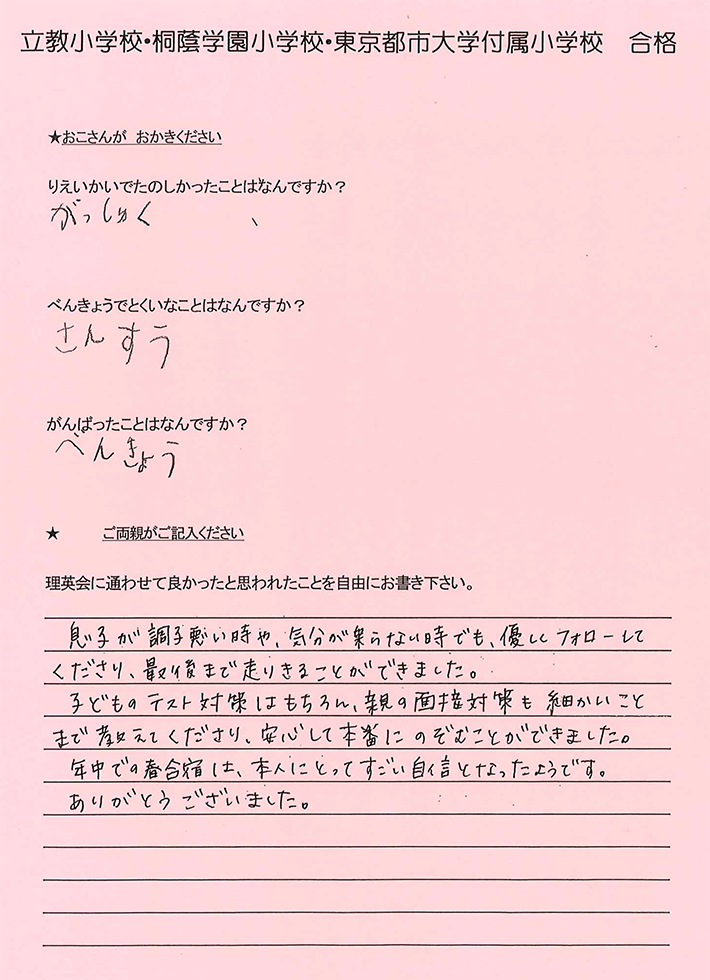 立教小学校・桐蔭学園小学校・東京都市大学付属小学校　合格
★おこさんが　おかきください
りえいかいでたのしかったことはなんですか？
がっしゅく
べんきょうでとくいなことはなんですか？
さんすう
がんばったことはなんですか？
べんきょう
★　ご両親がご記入ください
理英会に通わせて良かったと思われたことを自由にお書き下さい。
息子が調子悪い時や、気分が乗らない時でも、優しくフォローして
くださり、最後まで走りきることができました。
子どものテスト対策はもちろん、親の面接対策も細かいこと
まで教えてくださり、安心して本番にのぞむことができました。
年中での春合宿は、本人にとってすごい自信となったようです。
ありがとうございました。